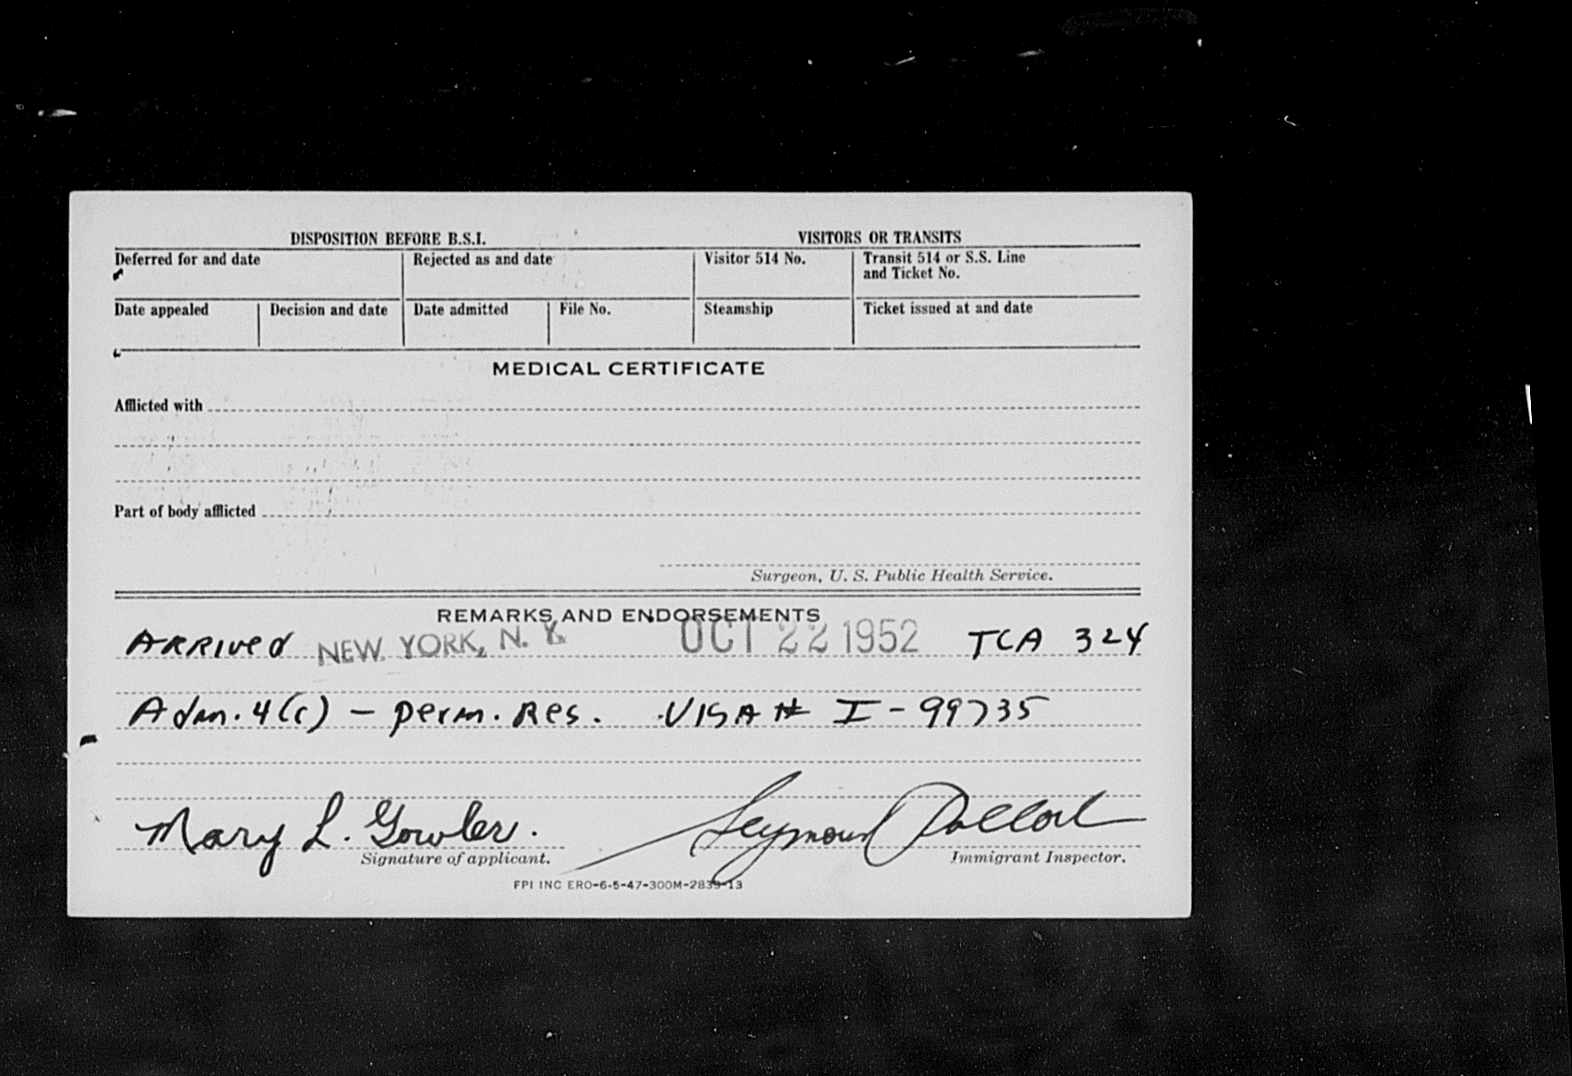 DISPOSITION BEFORE B.S.I. VISITORS OR TRANSITS
Deferred for and date Rejected as and date Visitor 514 No. Transit 514 or S.S. Line
and Ticket No.
Date appealed Decision and date Date admitted File No. Steamship Ticket issued at and date
MEDICAL CERTIFICATE
Afflicted with
Part of body afflicted
Surgeon, U. S. Public Health Service.
REMARKS AND ENDORSEMENTS
ARRIVED NEW YORK, N. Y. OCT 22 1952 TCA 324
Adm. 4(c) - perm. Res. VISA # I-99735
Mary L. Gowler. Seymour Pollock
Signature of applicant. Immigrant Inspector.
FPI INC ERO-6-5-47-300M-2839-13